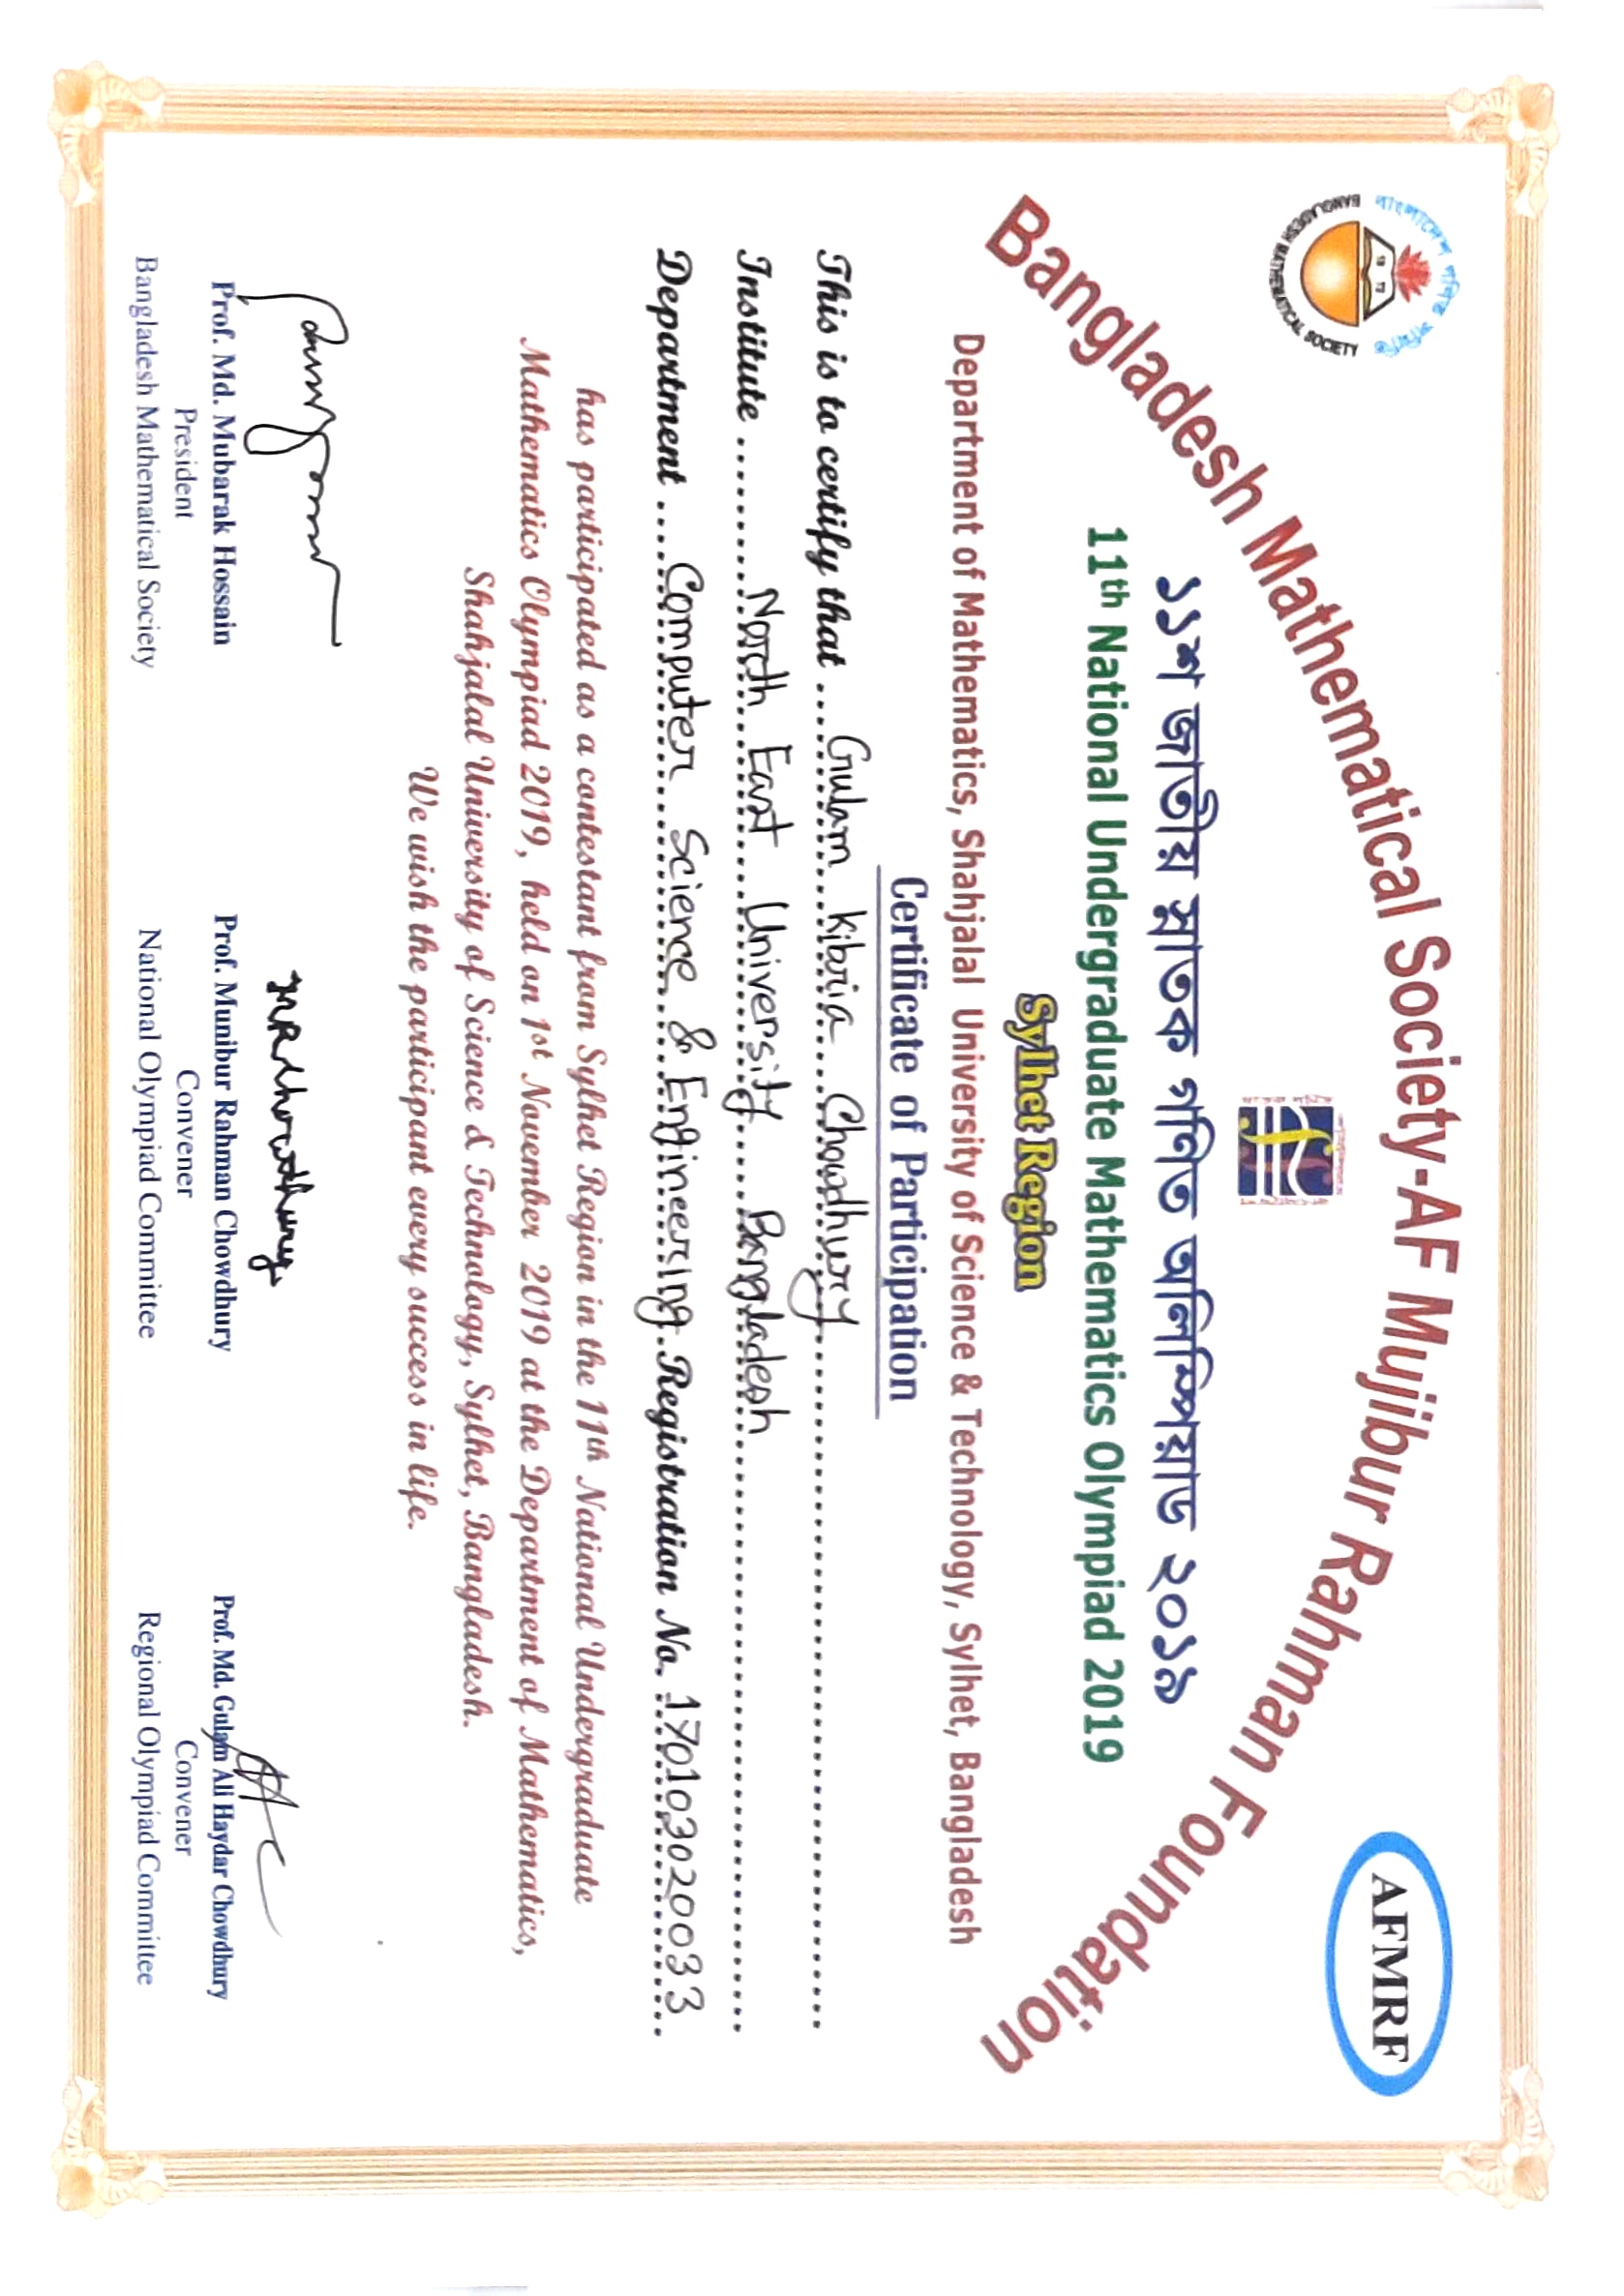 Bangladesh Mathematical Society-AF Mujibur Rahman Foundation
বাংলাদেশ গণিত সমিতি
19 72
BANGLADESH MATHEMATICAL SOCIETY
AFMRF
১১শ জাতীয় স্নাতক গণিত অলিম্পিয়াড ২০১৯
11th National Undergraduate Mathematics Olympiad 2019
Sylhet Region
Department of Mathematics, Shahjalal University of Science & Technology, Sylhet, Bangladesh
Certificate of Participation
This is to certify that Gulam Kibria Chowdhury
Institute North East University Bangladesh
Department Computer Science & Engineering Registration No. 170103020033
has participated as a contestant from Sylhet Region in the 11th National Undergraduate
Mathematics Olympiad 2019, held on 1st November 2019 at the Department of Mathematics,
Shahjalal University of Science & Technology, Sylhet, Bangladesh.
We wish the participant every success in life.
MRChowdhury
Prof. Md. Mubarak Hossain
President
Bangladesh Mathematical Society
Prof. Munibur Rahman Chowdhury
Convener
National Olympiad Committee
Prof. Md. Gulam Ali Haydar Chowdhury
Convener
Regional Olympiad Committee